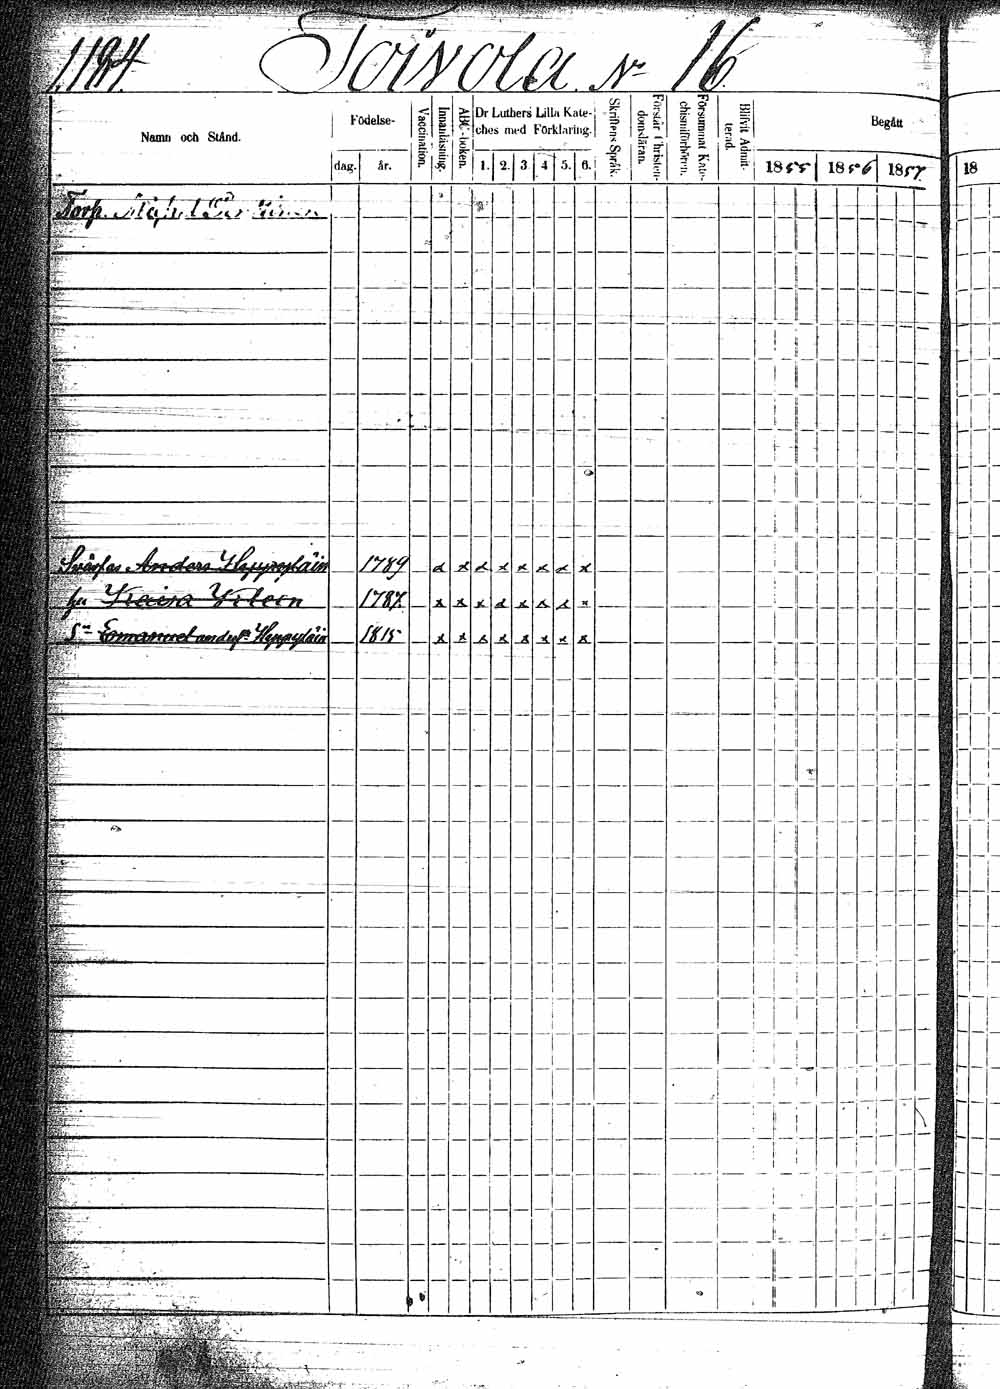 1184. Toivola No 16
Namn och Stånd.
Födelse-
dag. år.
Vaccination.
Innanläsning.
ABC-boken.
Dr Luthers Lilla Kate-
ches med Förklaring.
1. 2. 3 4 5. 6.
Skriftens Språk.
Förstår Christen-
domsläran.
Försummat Kate-
chismiförhören.
Blifvit Admit-
terad.
Begått
1855 1856 1857. 18
Torp.
Anders Heppyläin 1789 x x x x x x x x
hu 1787. x x x x x x x x
Sn Emanuel Heppyläin 1815 x x x x x x x x